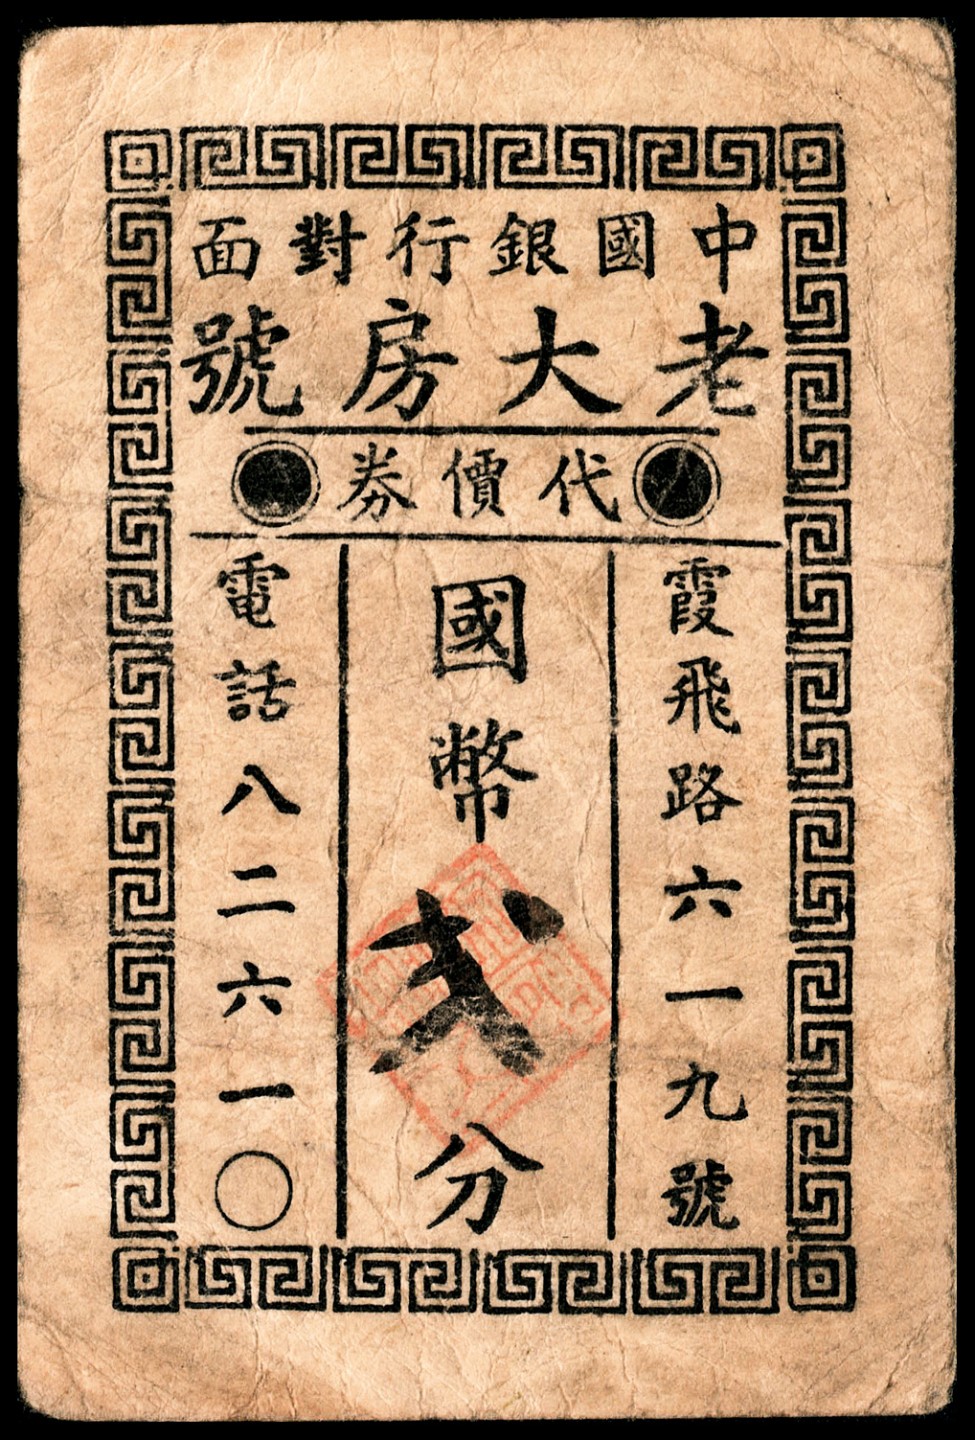 中國銀行對面
老大房號
代價券
霞飛路六一九號
國幣貳分
電話八二六一〇